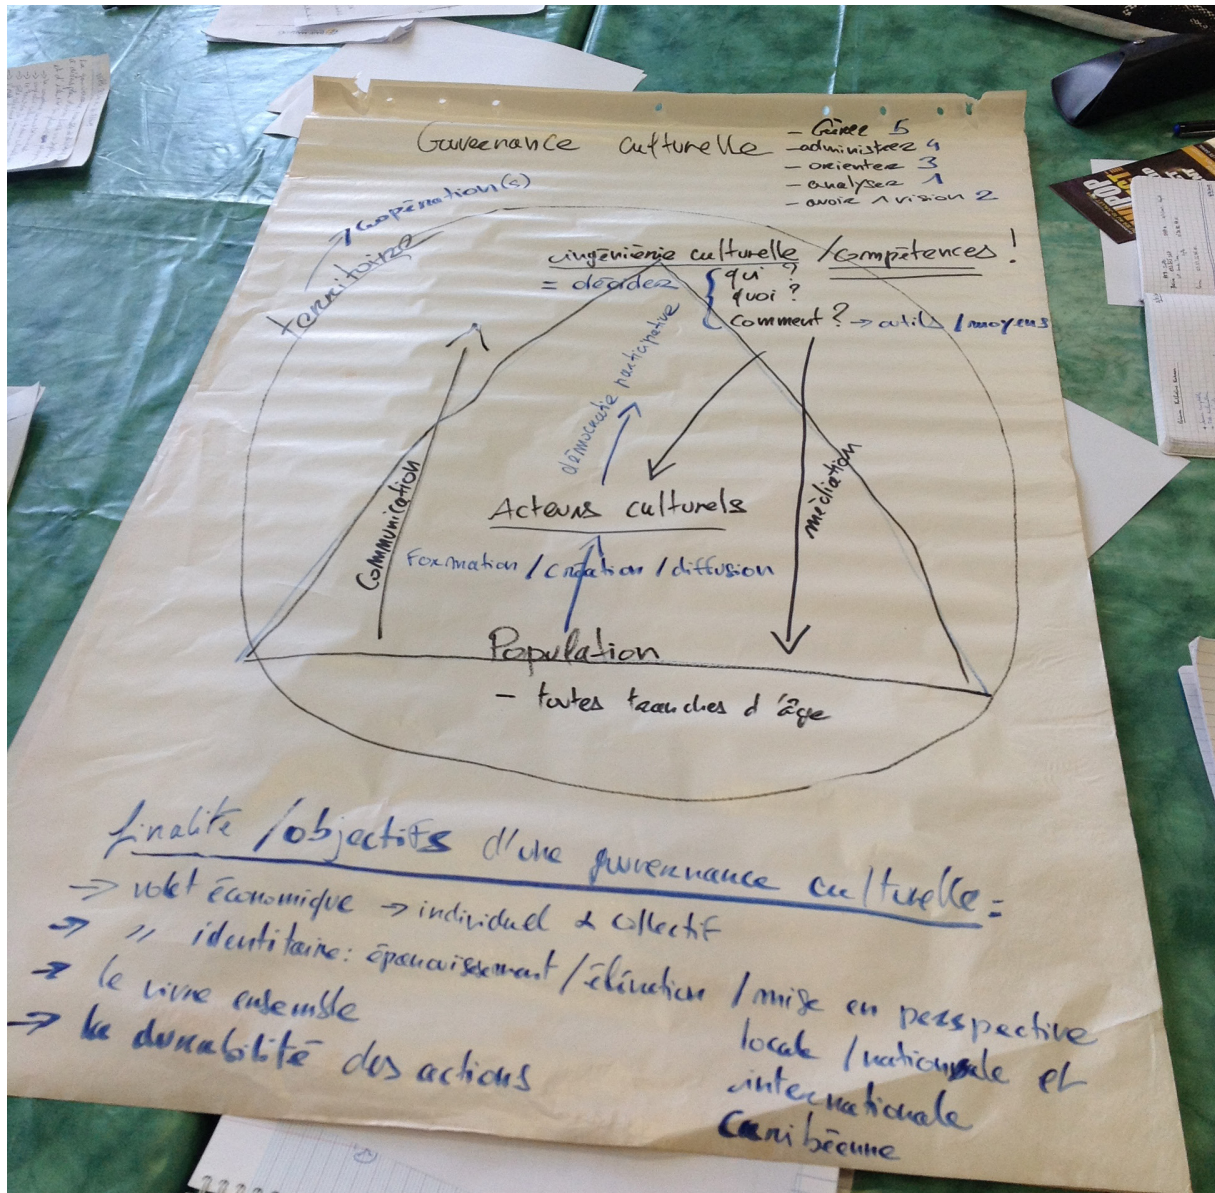 Gouvernance culturelle
- Gérer 5
- administrer 4
- orienter 3
- analyser 1
- avoir 1 vision 2
/coopération(s)
territoire
ingéniérie culturelle / compétences !
= décider
qui ?
quoi ?
comment ? → outils / moyens
démocratie participative
communication
médiation
Acteurs culturels
Formation / création / diffusion
Population
- toutes tranches d'âge
finalité / objectifs d'une gouvernance culturelle =
→ volet économique → individuel & collectif
→ " identitaire : épanouissement / élévation / mise en perspective
locale / nationale et
internationale
Caribéenne
→ le vivre ensemble
→ la durabilité des actions